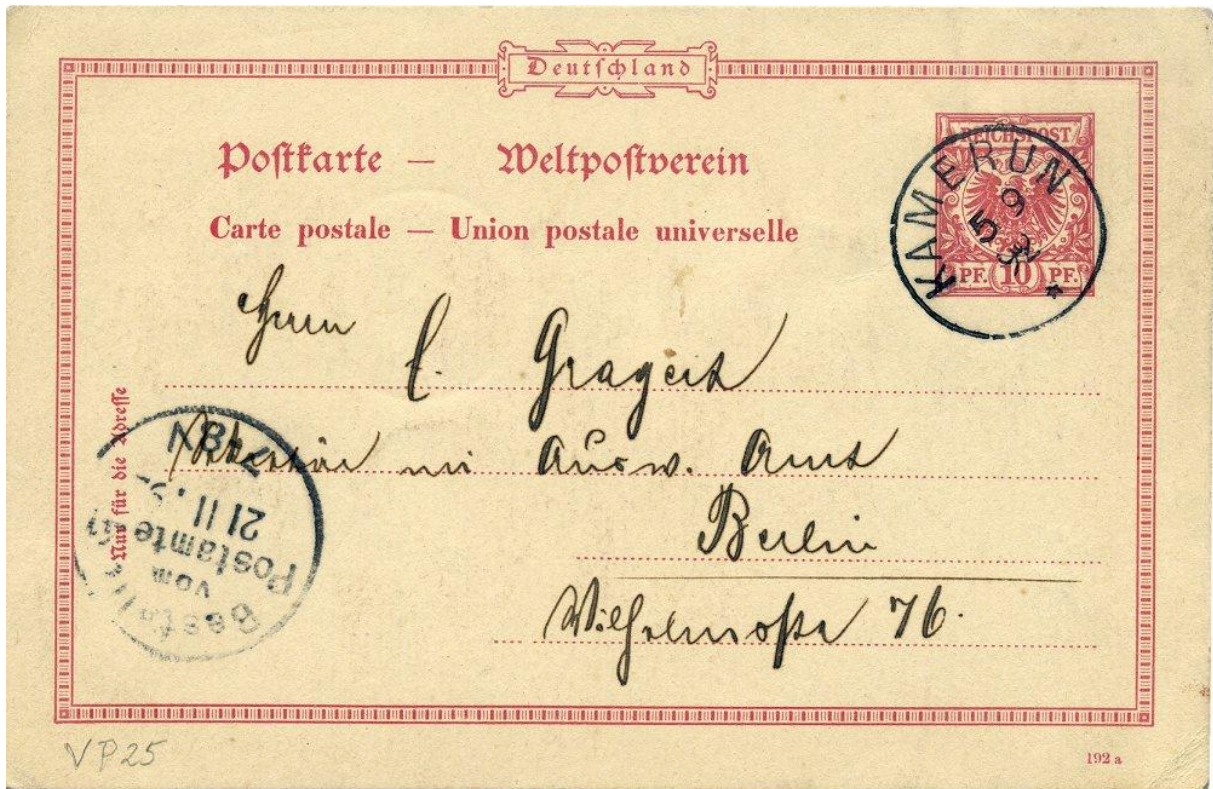 Deutschland
Postkarte — Weltpostverein
Carte postale — Union postale universelle
REICHSPOST
PF. 10 PF.
KAMERUN
5 9
Herrn
E. Grageck
im Ausw. Amt
Berlin
Wilhelmstr 76.
Nur für die Adresse
Bestellt
vom
Postamte
21 11
VP25
192 a